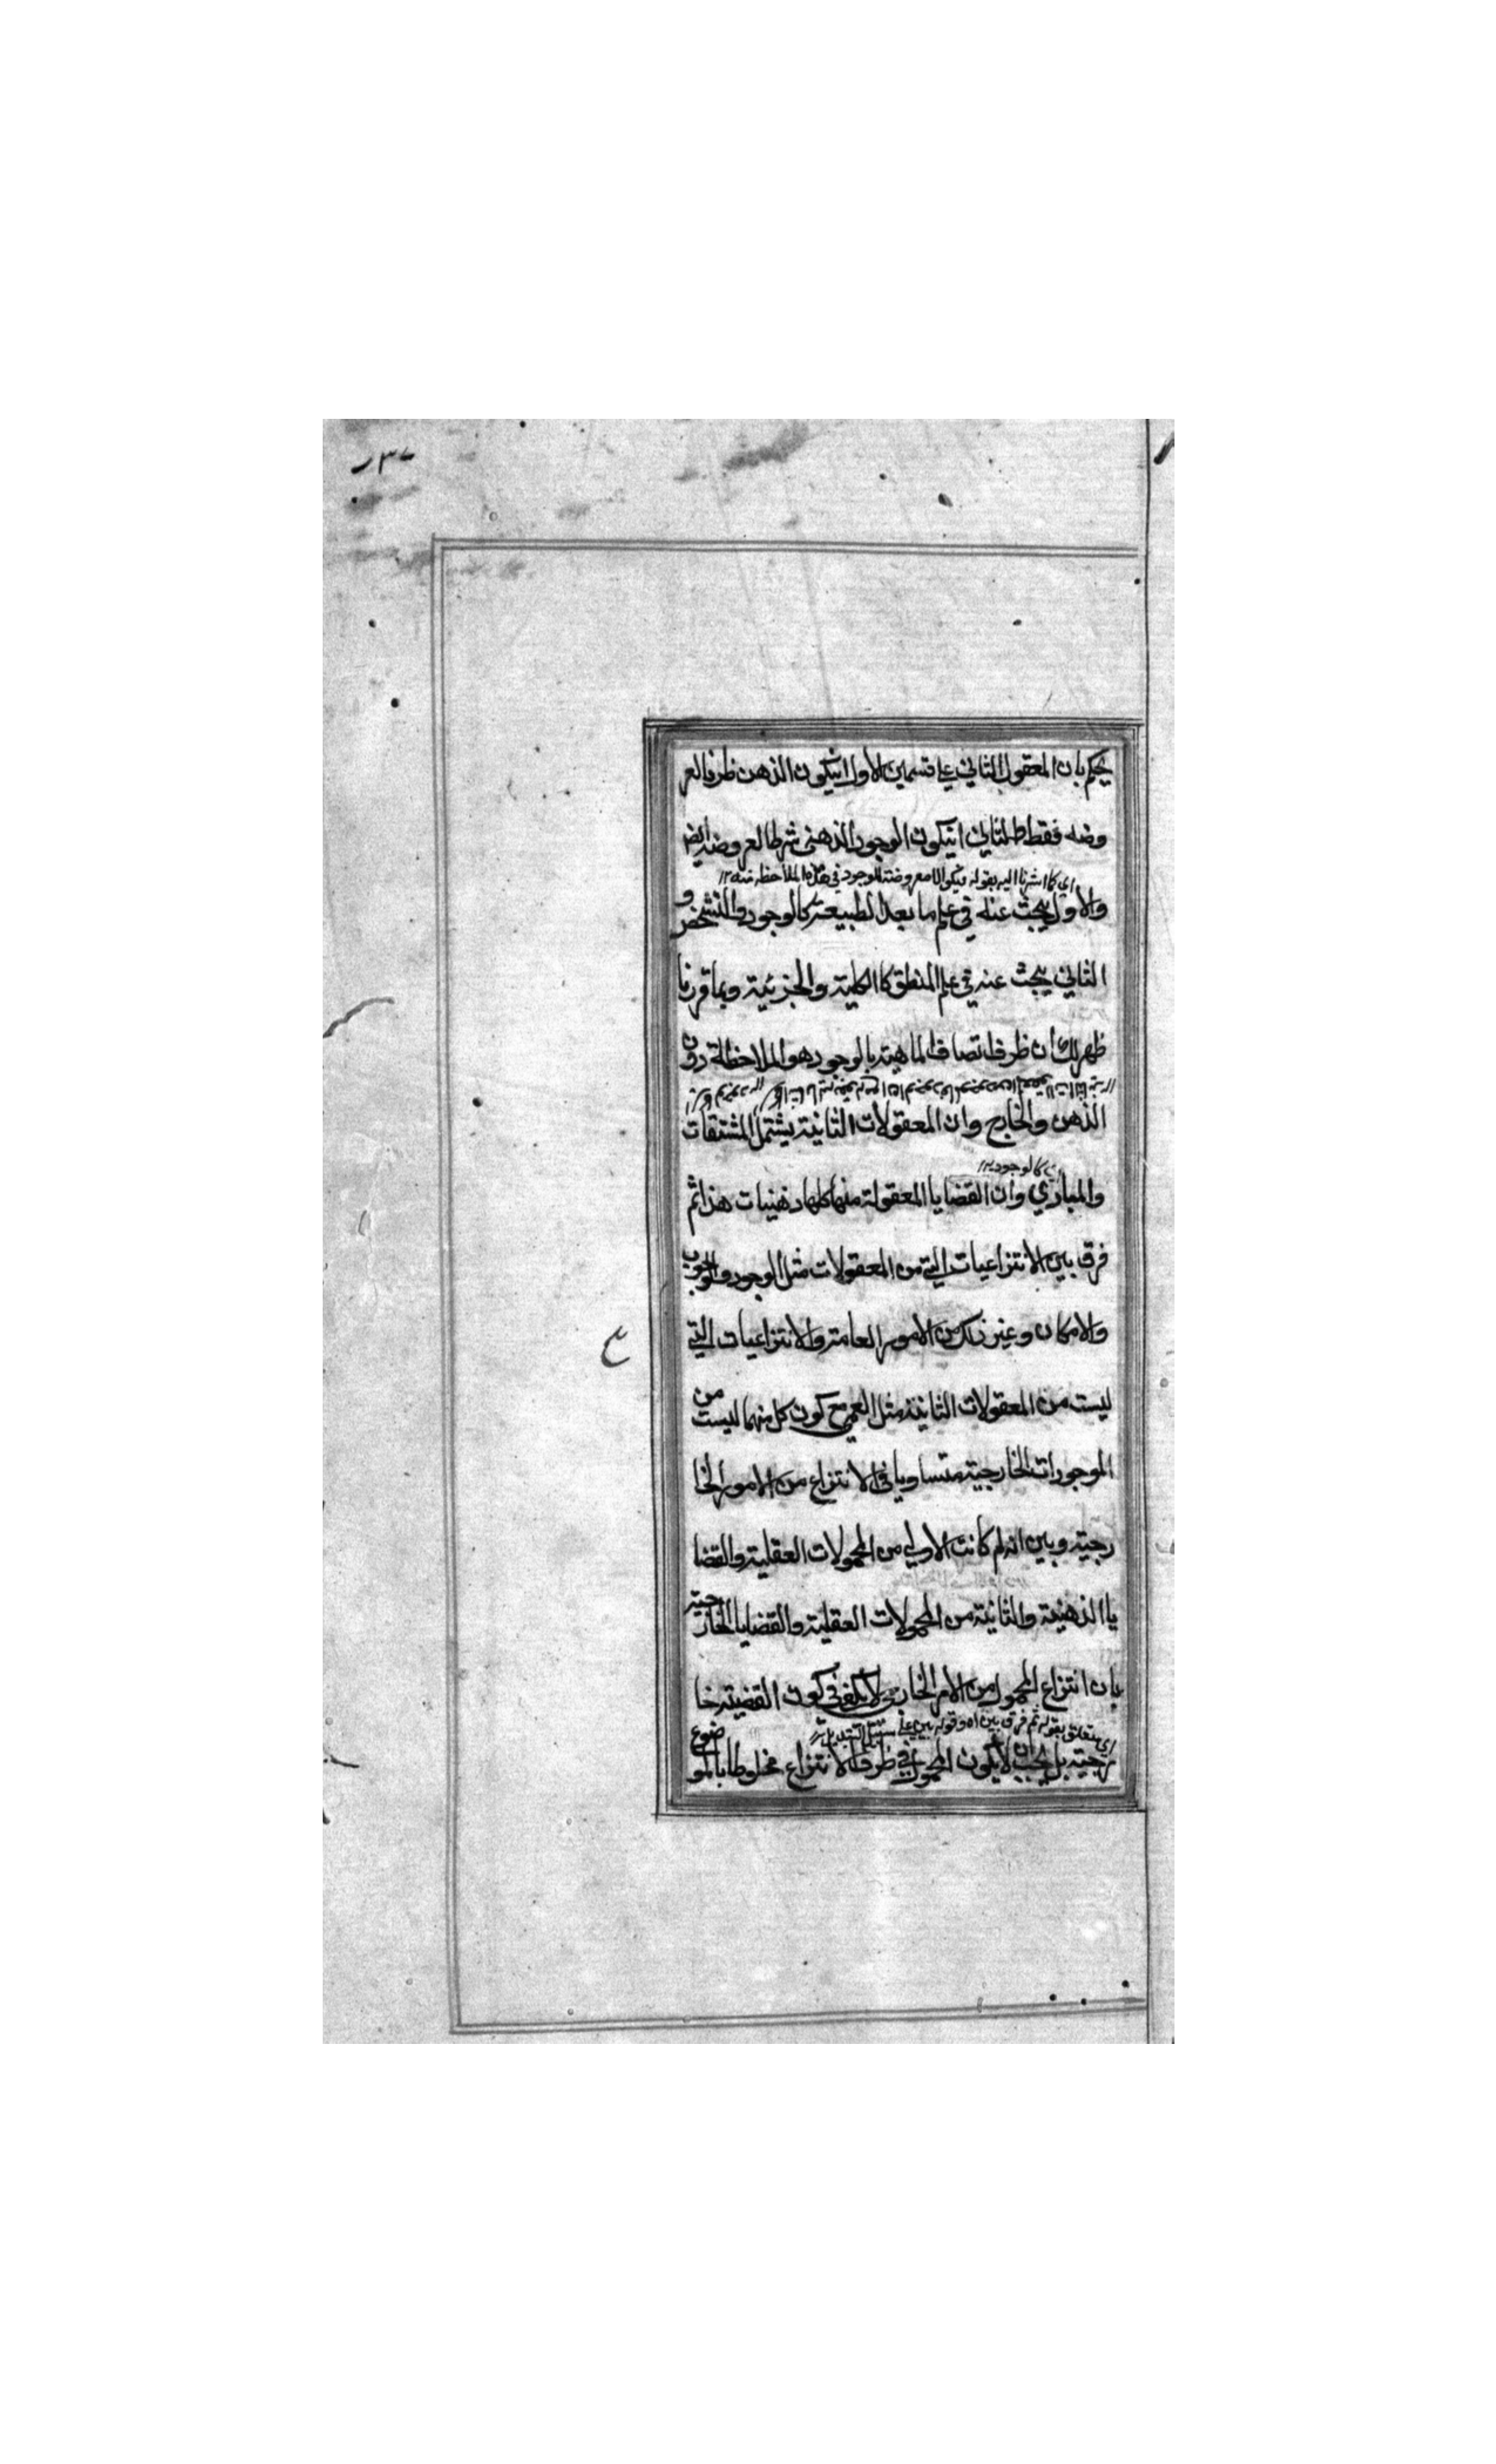 يحكم بان المعقول الثاني علي قسمين الاول انيكون الذهن ظرفا لعر
وضه فقط والثاني انيكون الوجود الذهني شرطا لعروضه ايضا
اي كما اشرنا اليه بقوله فيكون الا معروضة للوجود في هذه الملاحظة منه ١٢
والاول يبحث عنه في علم ما بعد الطبيعة كالوجود والتشخص و
الثاني يبحث عنه في علم المنطق كالكلية والجزئية وبما قررنا
ظهر لك ان ظرف اتصاف الماهية بالوجود هو الملاحظة دون
الذهن والخارج وان المعقولات الثانية يشتمل المشتقات
كالوجود ١٢
والمبادي وان القضايا المعقولة منها كلها ذهنيات هذا ثم
فرق بين الانتزاعيات التي من المعقولات مثل الوجود والوجوب
والامكان وغير ذلك من الامور العامة والانتزاعيات التي
ليست من المعقولات الثانية مثل العمي مع كون كل منهما ليست من
الموجودات الخارجية متساويا في الانتزاع من الامور الخا
رجية وبين انه لم كانت الاولي من المحمولات العقلية والقضا
يا الذهنية والثانية من المحمولات العقلية والقضايا الخارجية
بان انتزاع المحمول من الامر الخارجي لا يكفي في كون القضية خا
اي متعلق بقوله ثم فرق بين اه وقوله بين علي
رجية بل يجب ان لا يكون المحمول في ظرف الانتزاع مخلوطا بالموضوع
ع